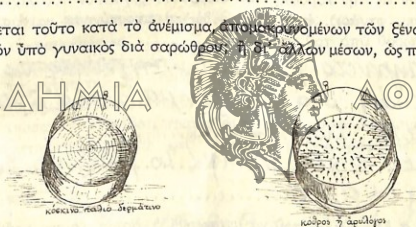 εται τοῦτο κατὰ τὸ ἀνέμισμα, ἀπομακρυνομένων τῶν ξένω
ὸν ὑπὸ γυναικὸς διὰ σαρώθρου; ἢ δι' ἄλλων μέσων, ὡς π
ΔΗΜΙΑ ΑΘ
κόσκινο παλιο δερμάτινο
κοῦρος ἢ ἀριλόγος